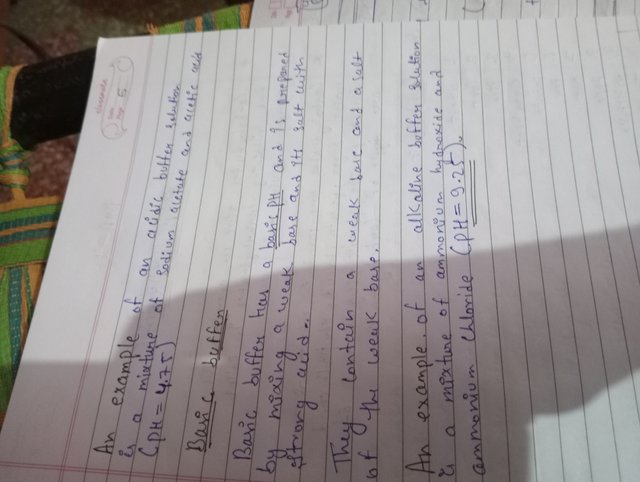 classmate
Date
Page 5
An example of an acidic buffer solution
is a mixture of sodium acetate and acetic acid
(PH = 4.75)
Basic buffer
Basic buffer has a basic PH and is prepared
by mixing a weak base and its salt with
strong acid.
They contain a weak base and a salt
of the weak base.
An example of an alkaline buffer solution
is a mixture of ammonium hydroxide and
ammonium chloride (PH = 9.25).